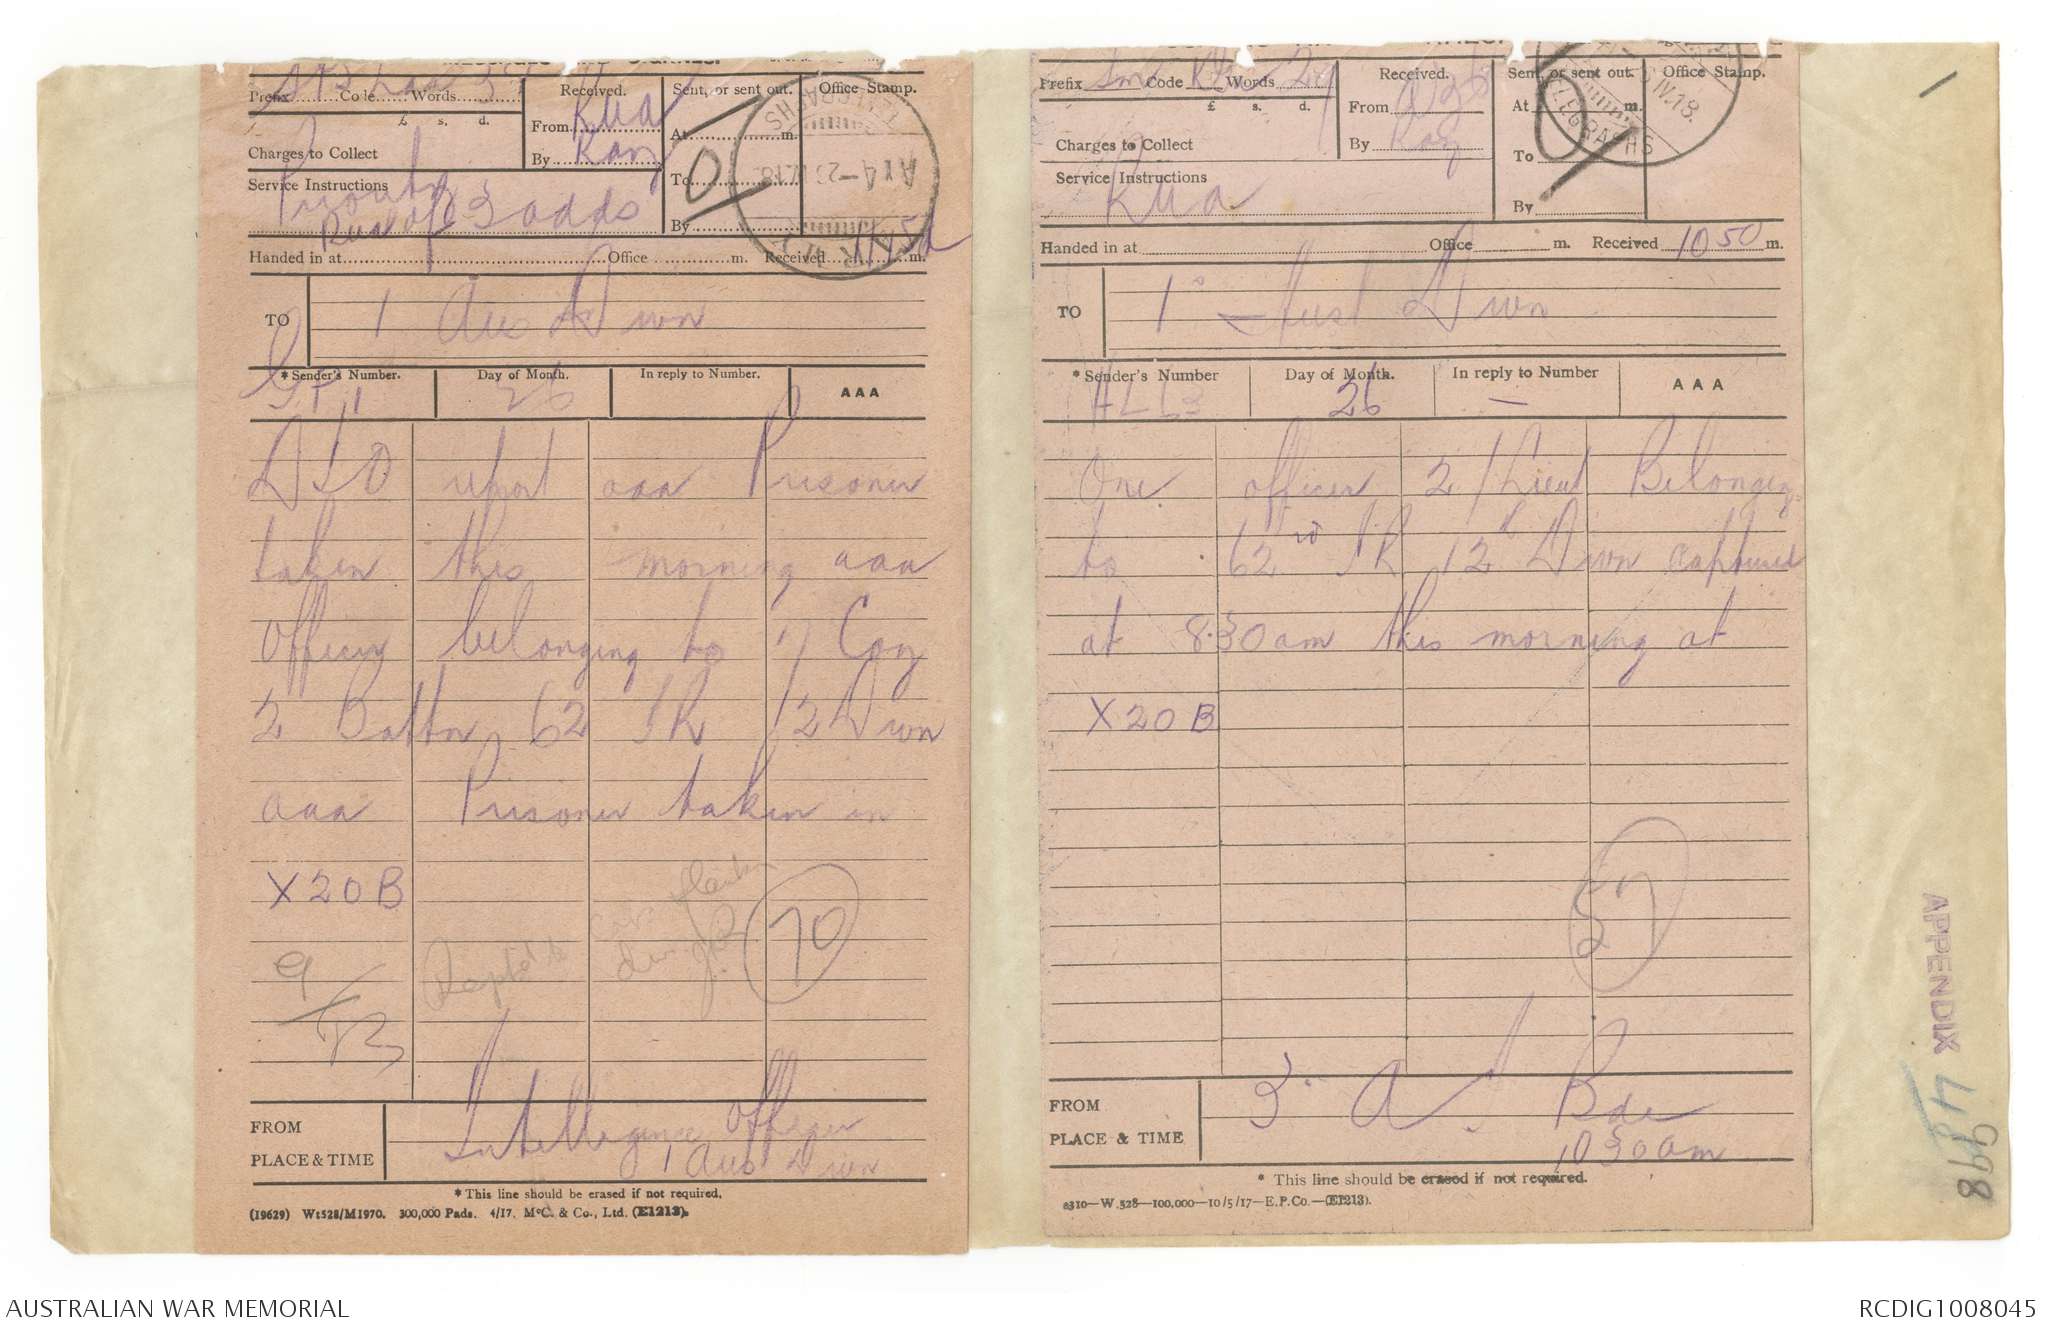 Prefix Code Words
£ s. d.
Charges to Collect
Service Instructions
Priority
3 adds
Received.
From Kua
By Kay
Sent, or sent out.
At m.
To
By
Office Stamp.
TELEGRAPHS
Handed in at Office m. Received m.
TO
1 Aus Divn
*Sender's Number.
Day of Month.
In reply to Number.
AAA
26
DIO report aaa Prisoner
taken this morning aaa
Officer belonging to 7 Coy
2 Battn 62 IR 12 Divn
aaa Prisoner taken in
X20B
70
FROM
PLACE & TIME
Intelligence Officer
1 Aus Divn
*This line should be erased if not required.
(19629) Wt528/M1970. 300,000 Pads. 4/17. McC. & Co., Ltd. (E1213).
Prefix Sm Code Words 29
£ s. d.
Charges to Collect
Service Instructions
Kua
Received.
From
By Kay
Sent, or sent out.
At m.
To
By
Office Stamp.
TELEGRAPHS
IV.18.
Handed in at Office m. Received 10 50 m.
TO
1st Aust Divn
*Sender's Number
Day of Month.
In reply to Number
AAA
26 —
One officer 2/Lieut Belonging
to 62nd IR 12th Divn captured
at 8.30 am this morning at
X20B
57
FROM
PLACE & TIME
3rd A I Bde
10 30 am
* This line should be erased if not required.
e310—W.528—100,000—10/5/17—E.P.Co.—(E1213).
APPENDIX
998
AUSTRALIAN WAR MEMORIAL
RCDIG1008045